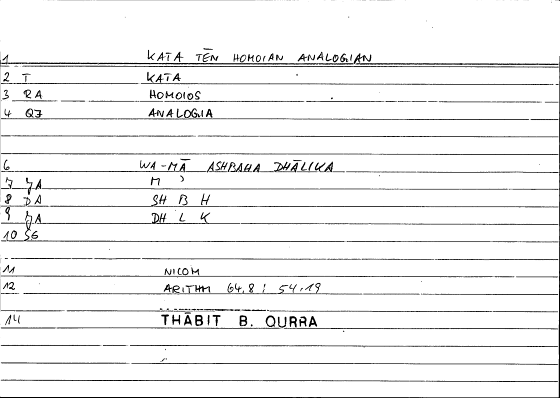 1 KATA TĒN HOMOIAN ANALOGIAN
2 T KATA
3 RA HOMOIOS
4 QZ ANALOGIA
6 WA-MĀ ASHBAHA DHĀLIKA
7 JA M ʾ
8 DA SH B H
9 JA DH L K
10 SG
11 NICOM
12 ARITHM 64.8 : 54.19
14 THĀBIT B. QURRA